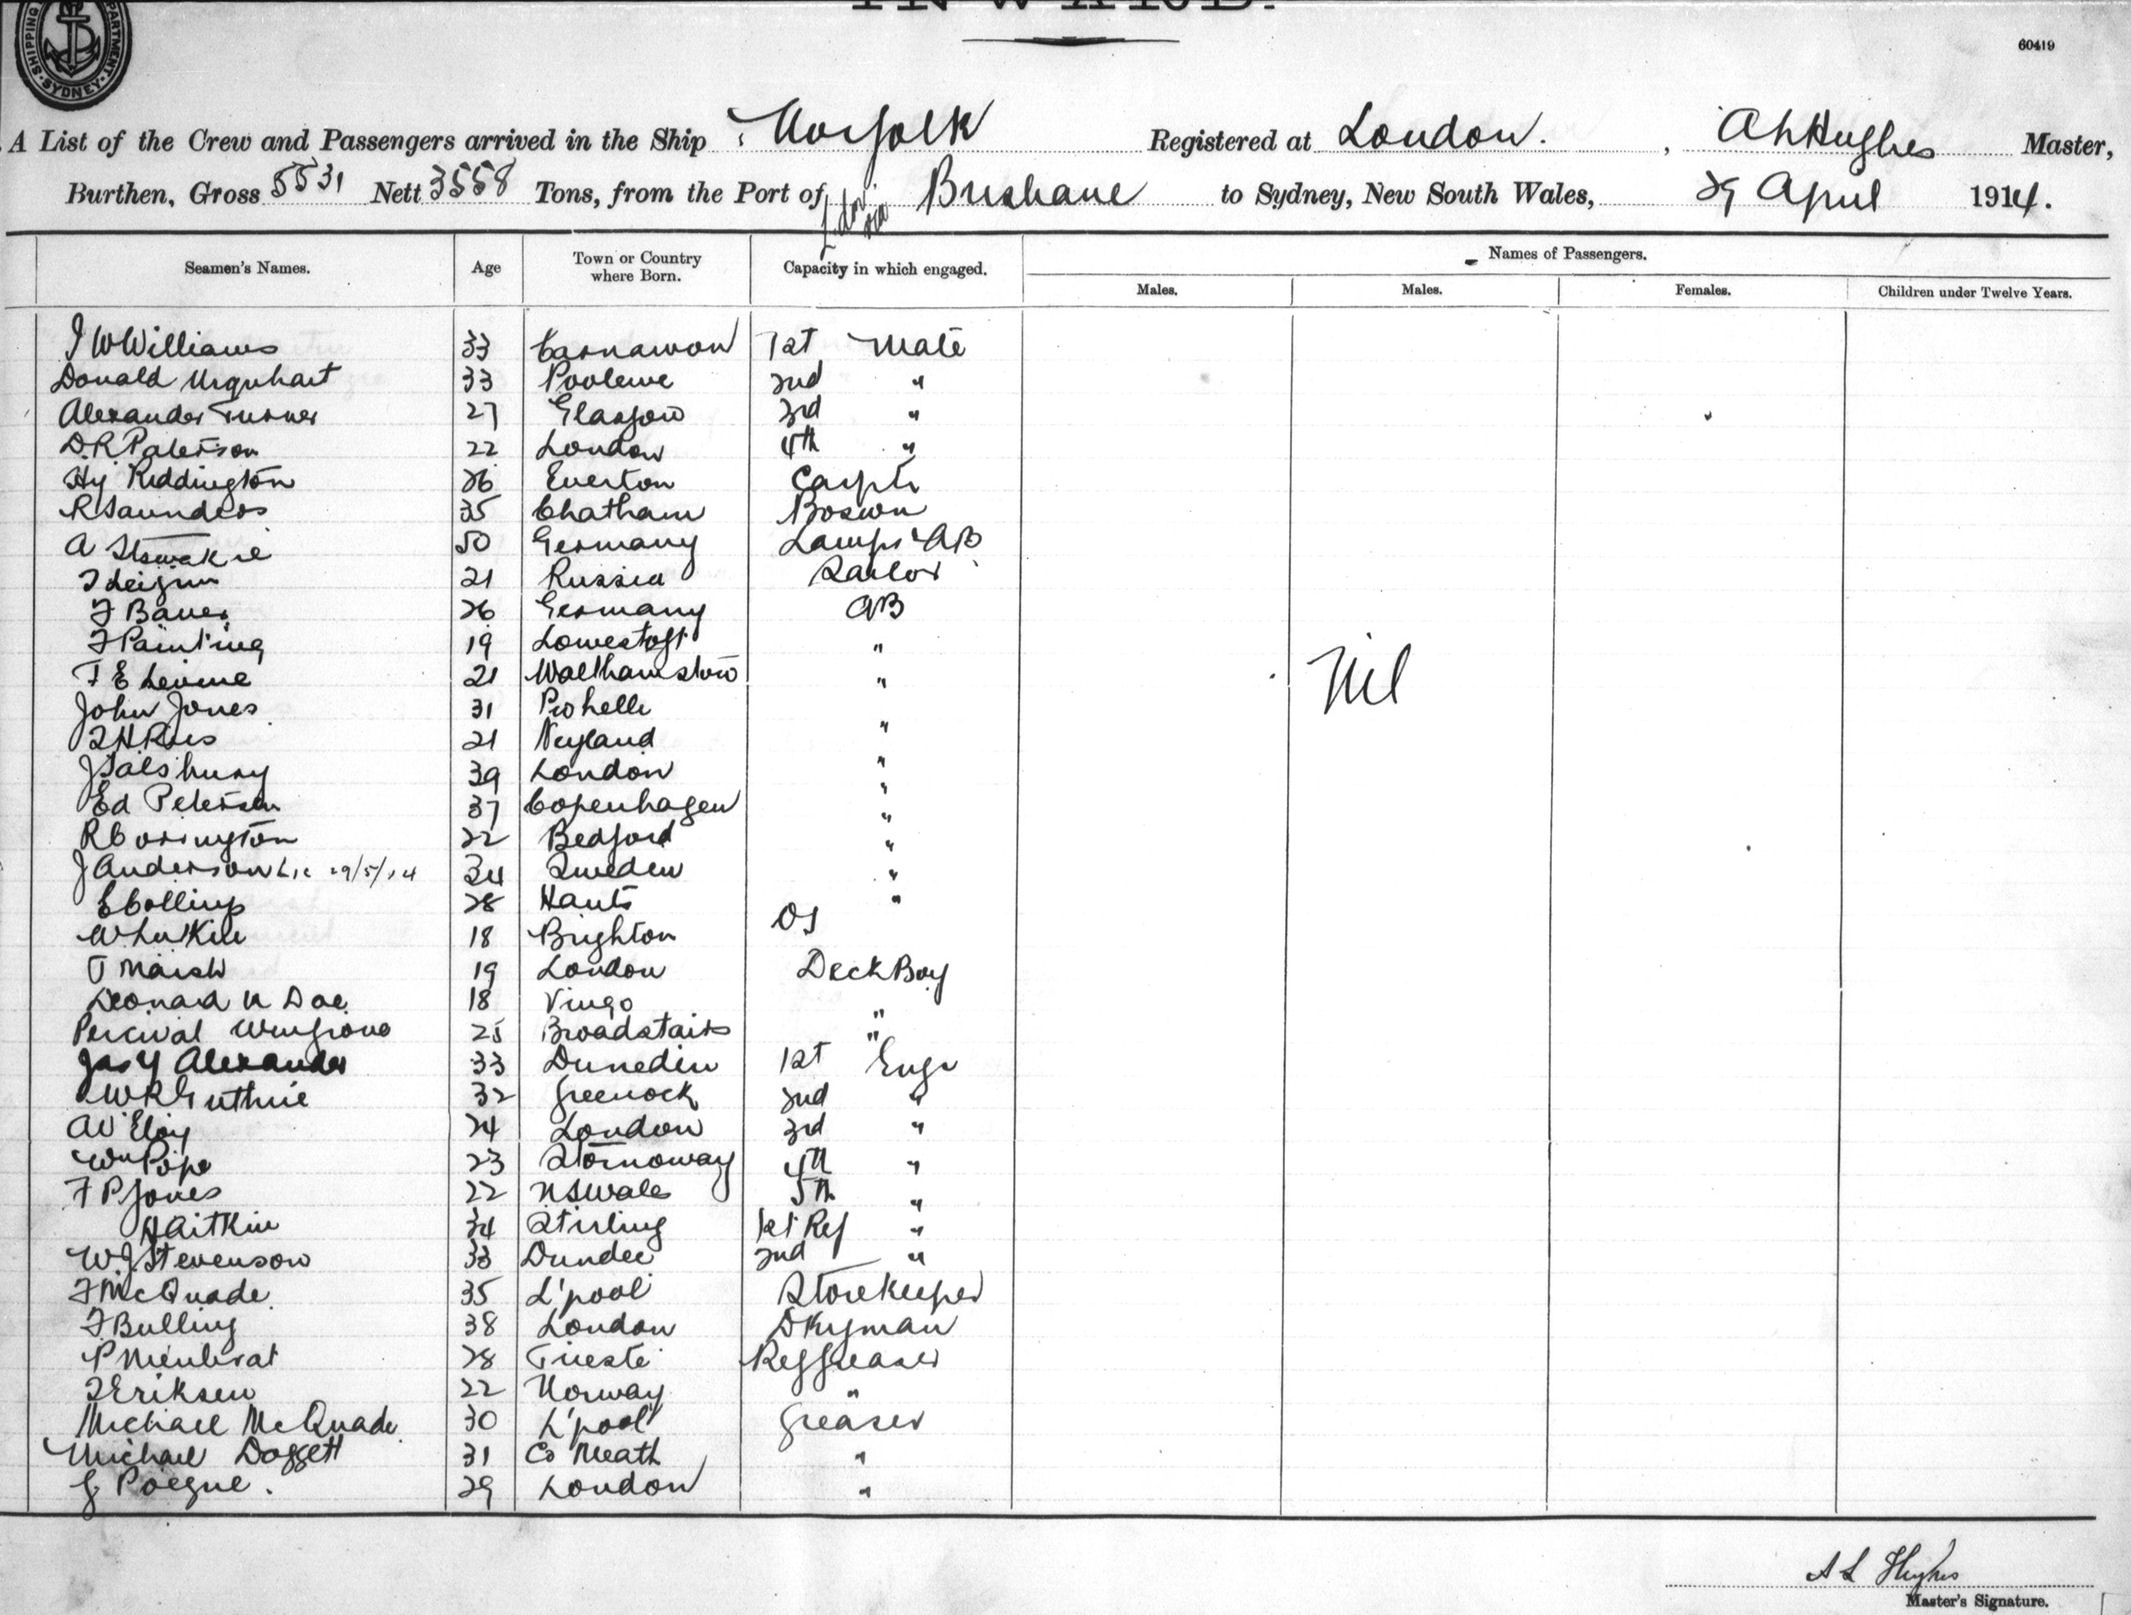 INWARD.
SHIPPING DEPARTMENT SYDNEY
60419
A List of the Crew and Passengers arrived in the Ship Norfolk Registered at London. , A L Hughes Master,
Burthen, Gross 5531 Nett 3558 Tons, from the Port of via Brisbane to Sydney, New South Wales, 29 April 1914.
Seamen's Names. Age Town or Country where Born. Capacity in which engaged. Names of Passengers.
Males. Males. Females. Children under Twelve Years.
J W Williams 33 Carnarvon 1st Mate
Donald Urquhart 33 Poolewe 2nd "
Alexander Turner 27 Glasgow 3rd "
D. R. Paterson 22 London 4th "
Hy Riddington 26 Everton Carptr
R Saunders 35 Chatham Boswn
A 50 Germany Lamps & AB
21 Russia Sailor
F Bauer 26 Germany AB
F Painting 19 Lowestoft "
F E Levene 21 Walthamstow "
John Jones 31 Pwhelli "
21 Neyland "
J Salsbury 39 London "
Ed Petersen 37 Copenhagen "
R Corrington 22 Bedford "
J Anderson 29/5/14 34 Sweden "
E Collings 28 Hants "
W 18 Brighton OS
T Marsh 19 London Deck Boy
Leonard N Dae 18 "
Percival Wingrove 25 Broadstairs "
Jas Y Alexander 33 Dunedin 1st Engr
W R Guthrie 32 Greenock 2nd "
A V Eloy 24 London 3rd "
Wm Pope 23 Stornoway 4th "
F P Jones 22 N S Wales 5th "
H Aitkin 34 Stirling 1st Ref "
W. J. Stevenson 33 Dundee 2nd "
F McQuade 35 L'pool Storekeeper
F Bulling 38 London Dkyman
P 28 Trieste Ref Greaser
Eriksen 22 Norway "
Michael McQuade 30 L'pool Greaser
Michael Doggett 31 Co Meath "
G 29 London "
Nil
A L Hughes
Master's Signature.